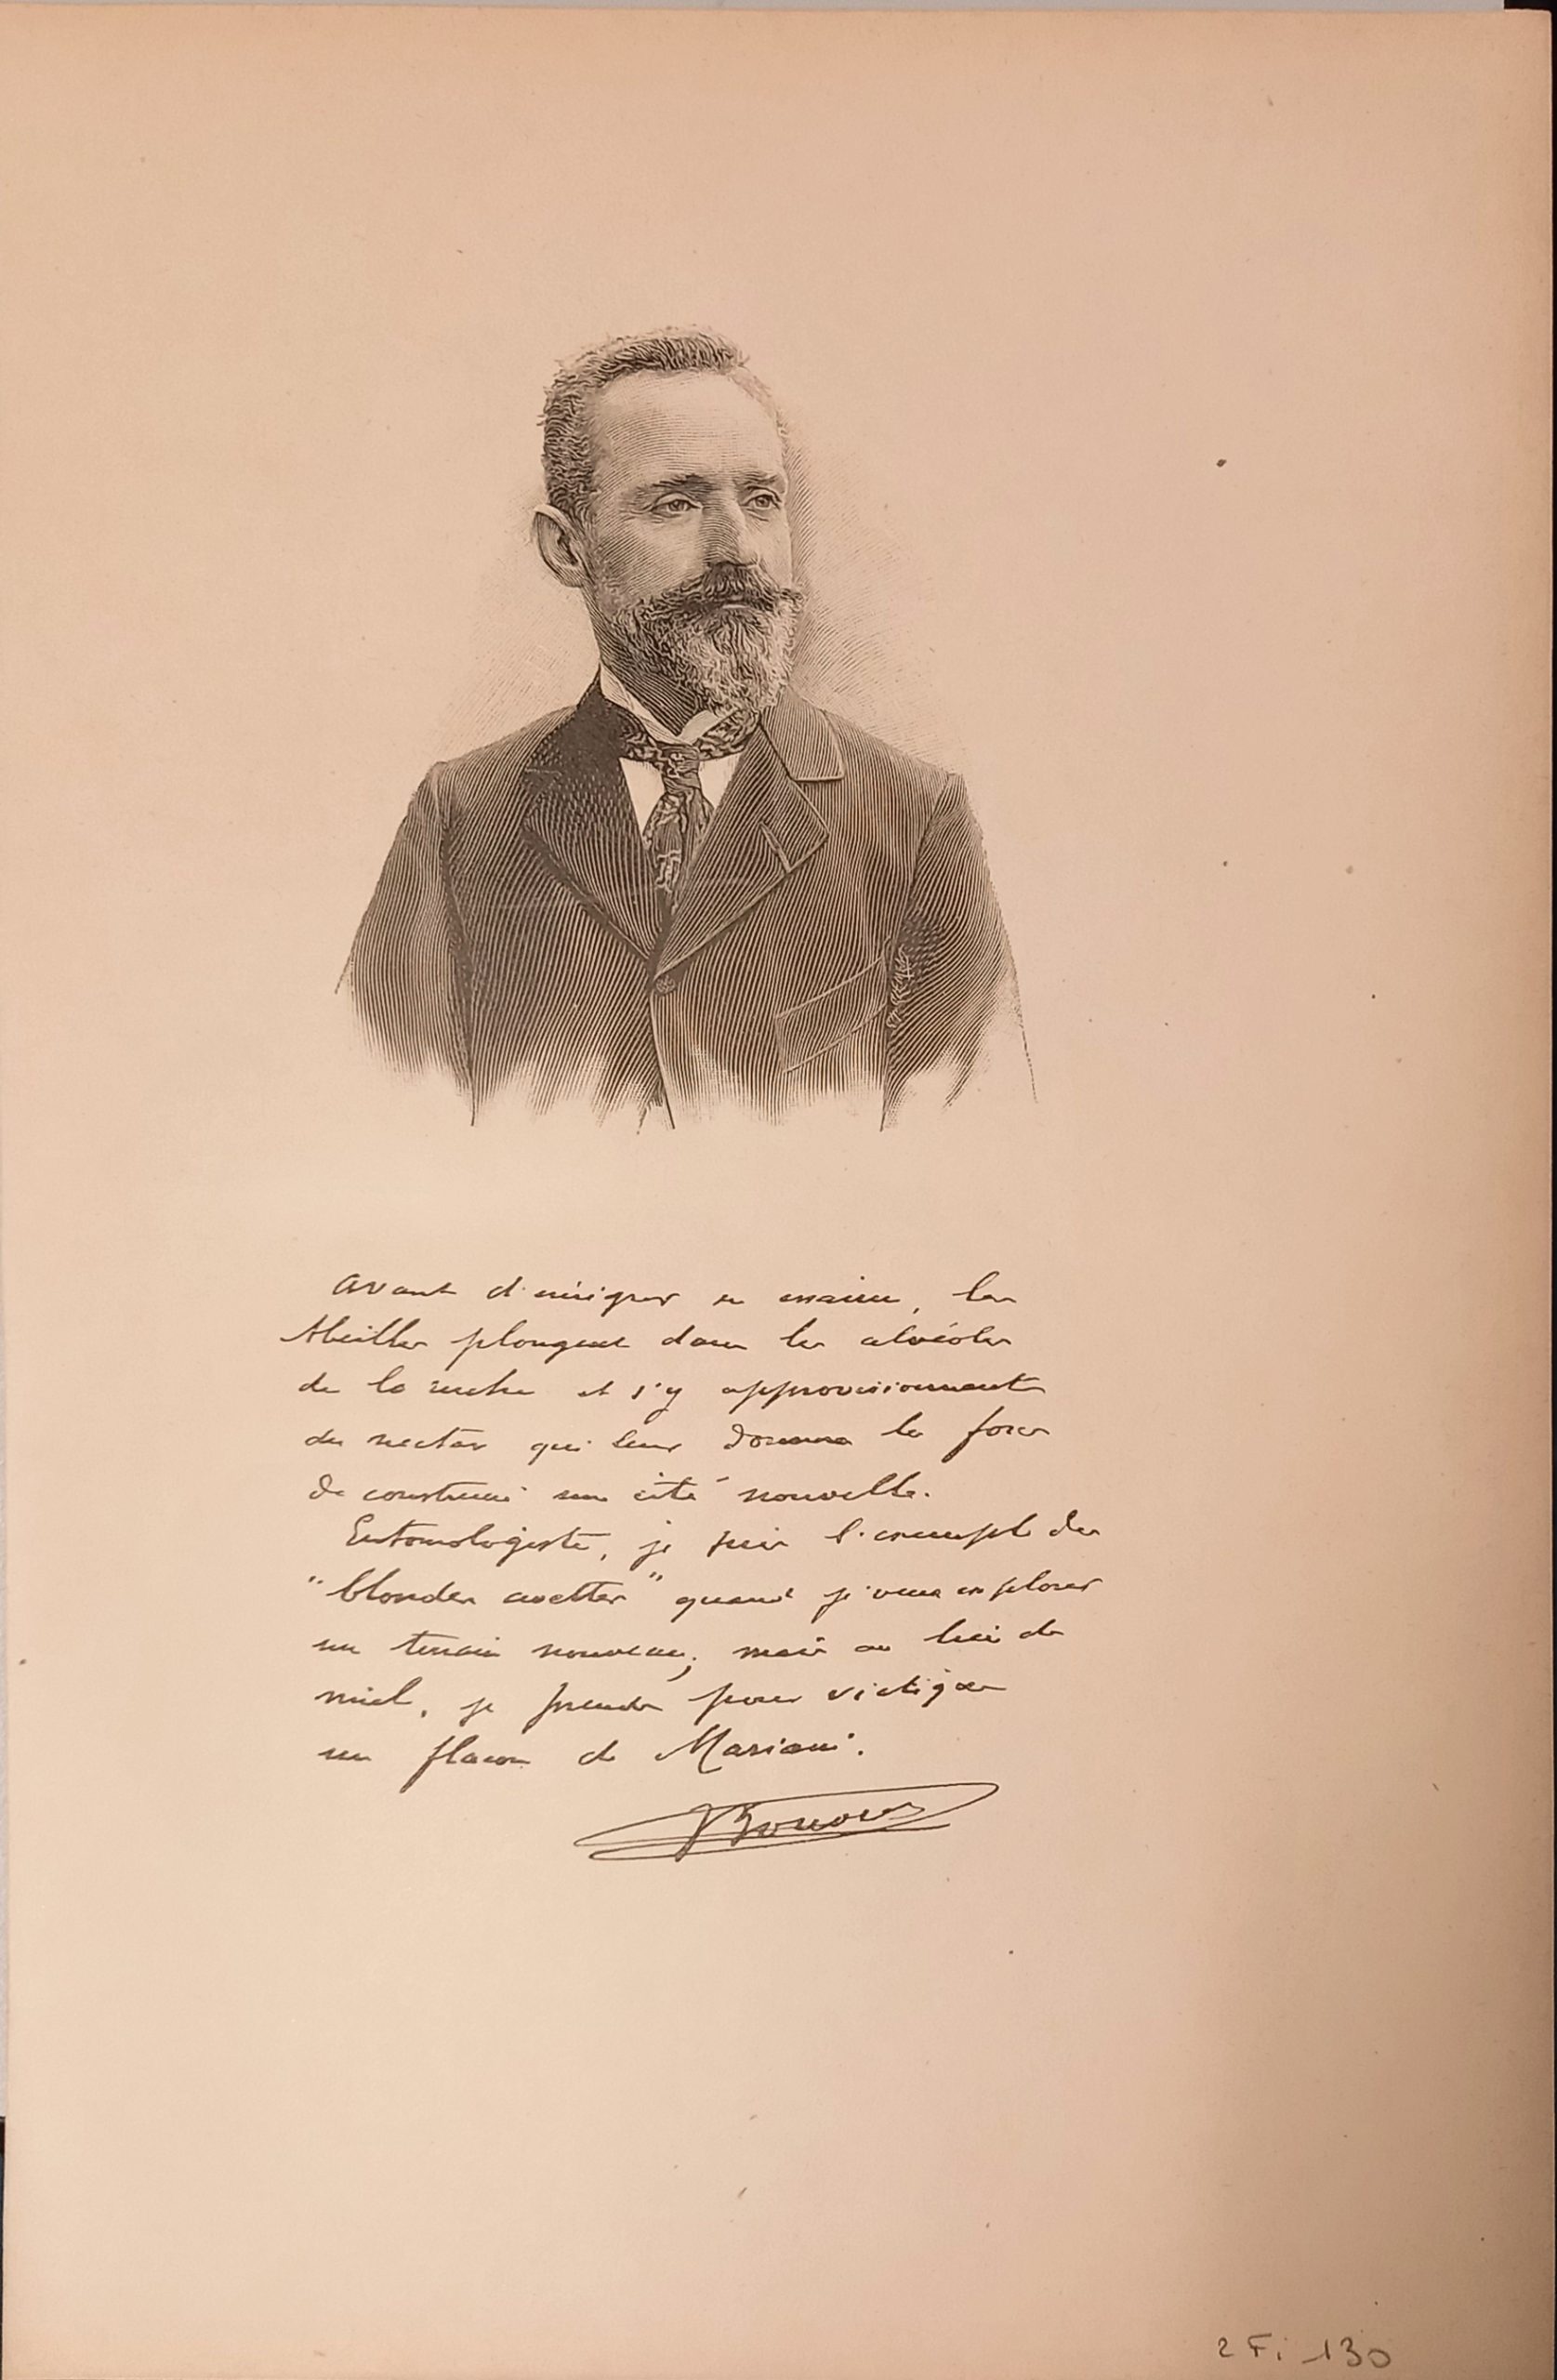 Avant d'émigrer en essaim, les
Abeilles plongent dans les alvéoles
de la ruche et s'y approvisionnent
du nectar qui leur donnera la force
de construire une cité nouvelle.
Entomologiste, je suis l'exemple des
"blondes avettes" quand je veux explorer
un terrain nouveau; mais au lieu de
miel, je prends pour viatique
un flacon de Mariani.
2 Fi 130